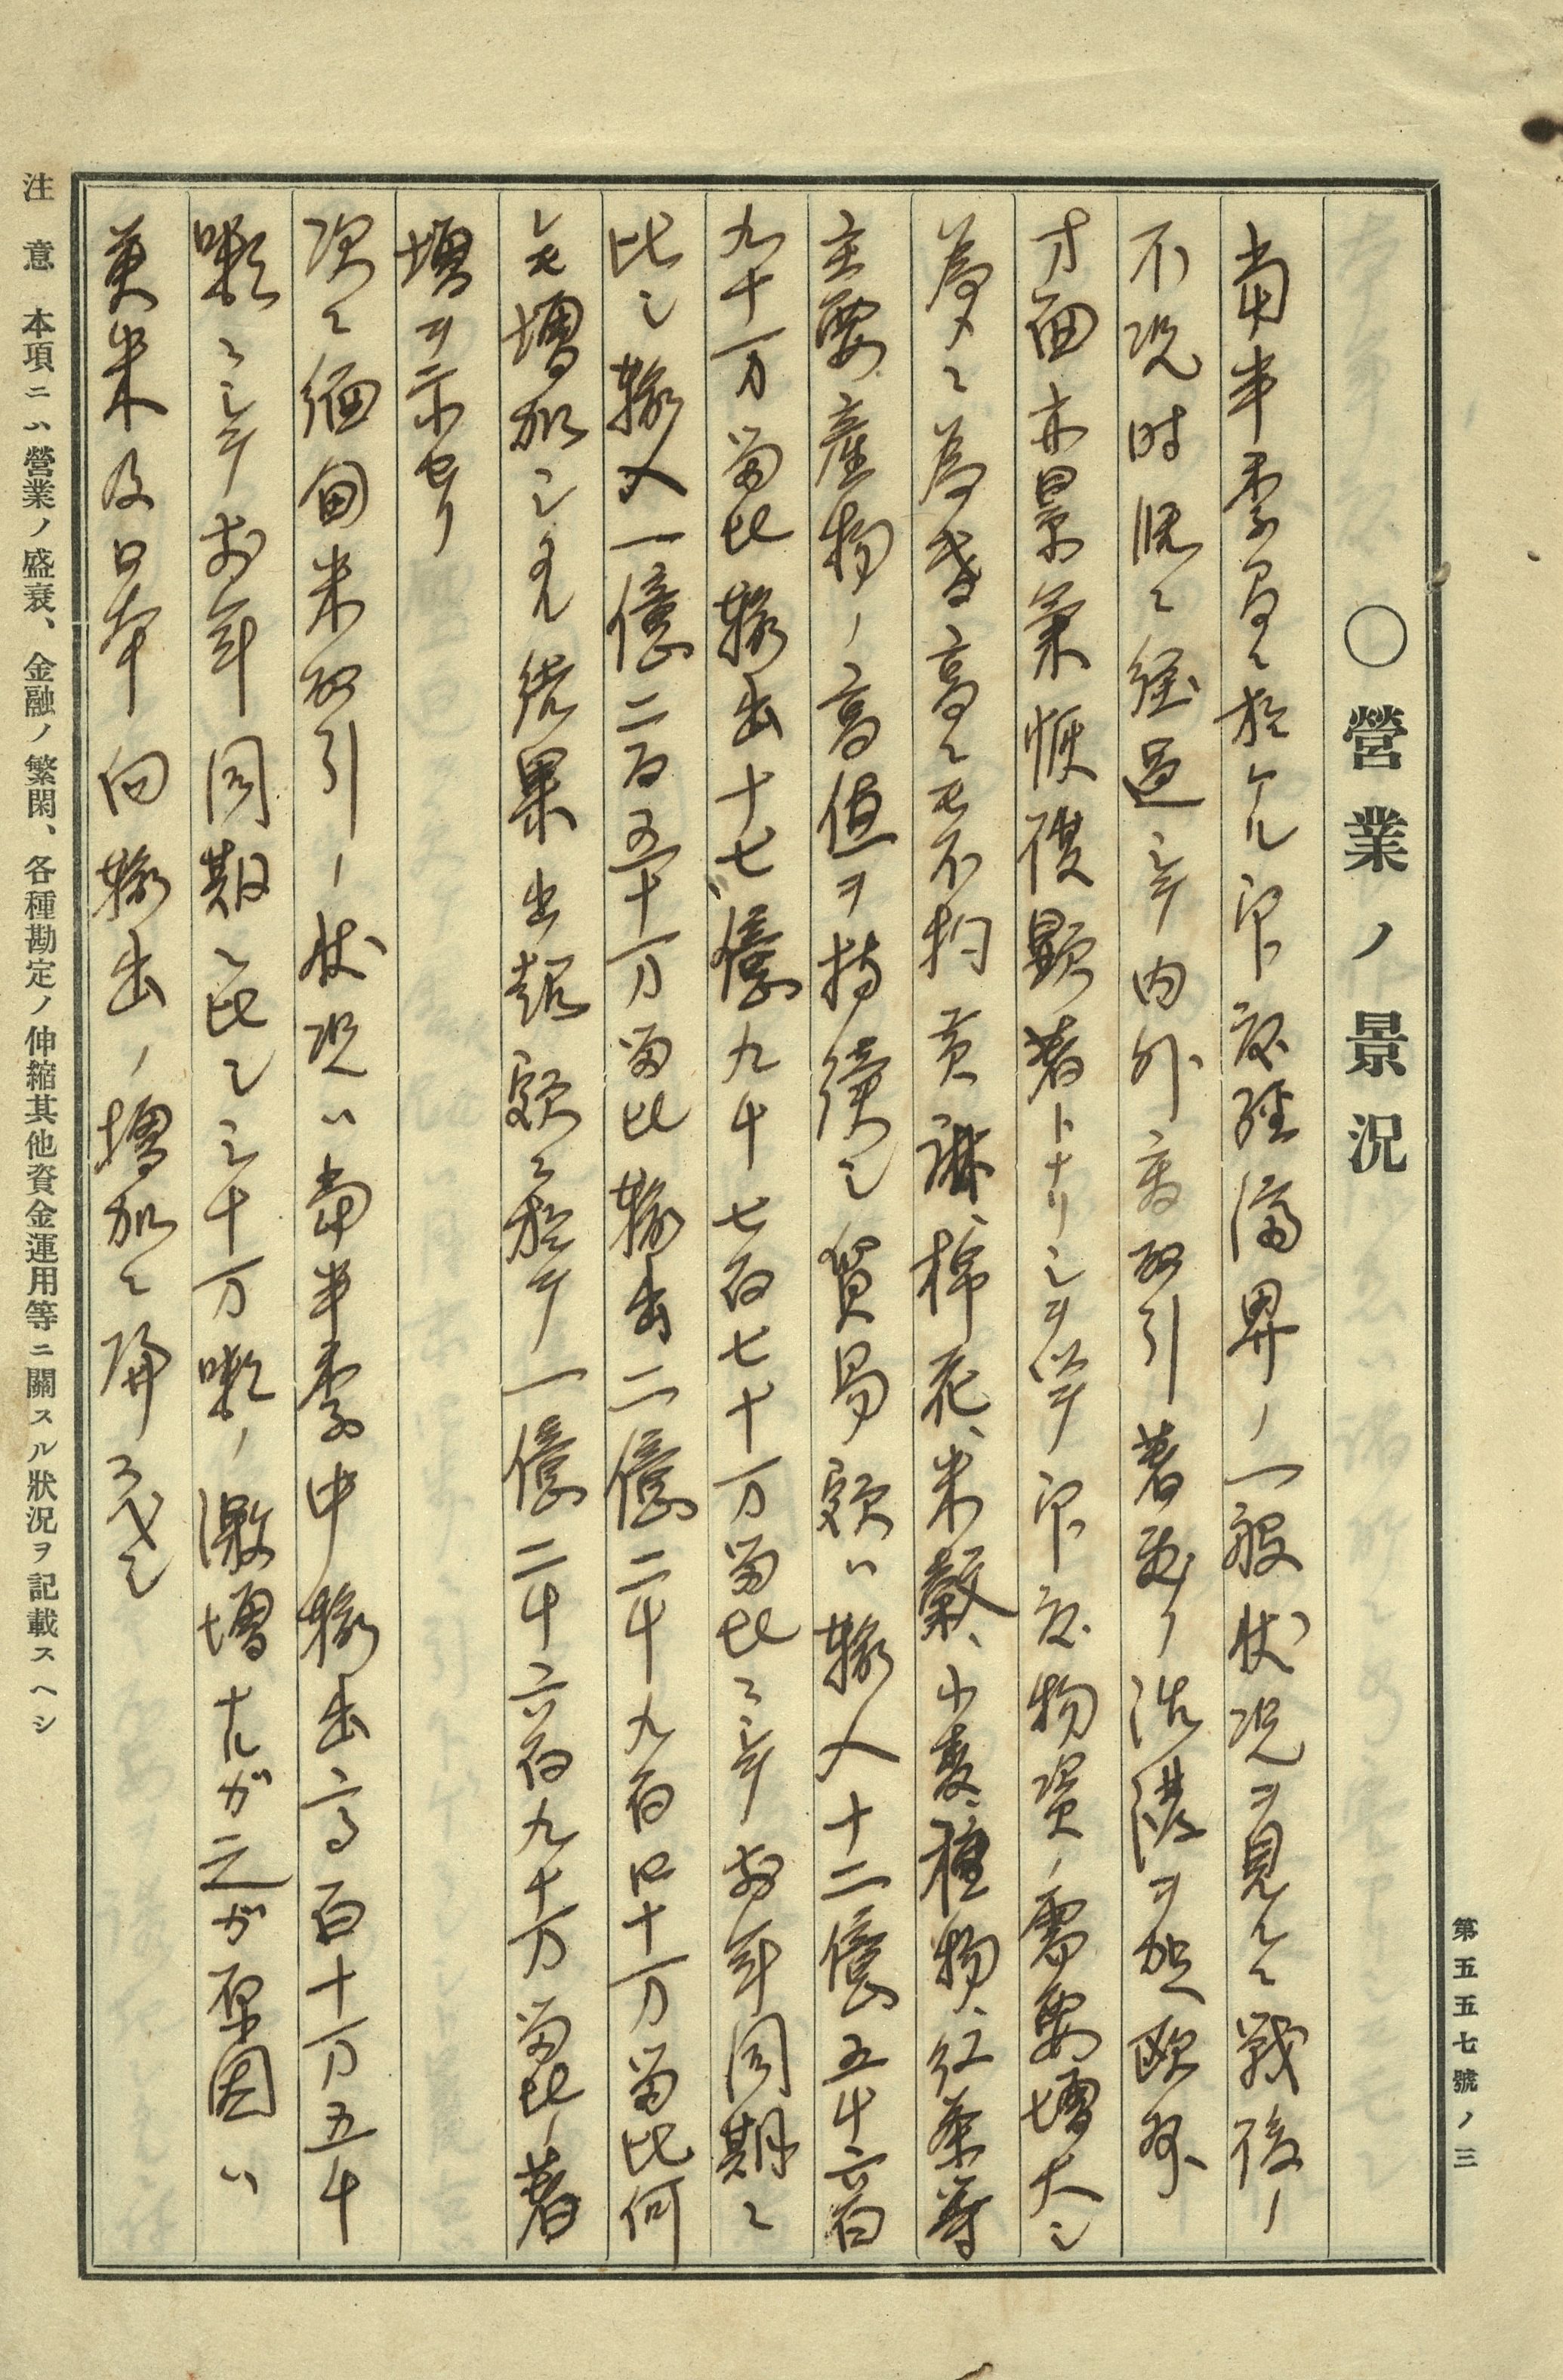 第五五七號ノ三
〇營業ノ景況
當半季間ニ於ケル印度經濟界ノ一般狀況ヲ見ルニ戰後ノ
不況時既ニ經過シテ內外商取引著敷ク活潑ヲ加ヘ歐洲
方面亦景氣恢復顯著トナリシヲ以テ印度物資ノ需要增大シ
為メニ為替高ニモ不拘黃麻、棉花、米穀、小麥、種物、紅茶等
主要產物ノ高値ヲ持續シ貿易額ハ輸入十二億五千六百
九十万留比輸出十七億九千七百七十万留比ニシテ前年同期ニ
比シ輸入一億二百五十万留比輸出二億二千九百四十万留比何
レモ增加シタル結果出超額ニ於テ一億二千六百九十万留比ノ著
增ヲ示セリ
次ニ緬甸米取引ノ狀況ハ當半季中輸出高百十万五千
噸ニシテ前年同期ニ比シ三十万噸ノ激增ナルガ之ガ原因ハ
英米及日本向輸出ノ增加ニ歸スベク
注意 本項ニハ營業ノ盛衰、金融ノ繁閑、各種勘定ノ伸縮其他資金運用等ニ關スル狀況ヲ記載スヘシ